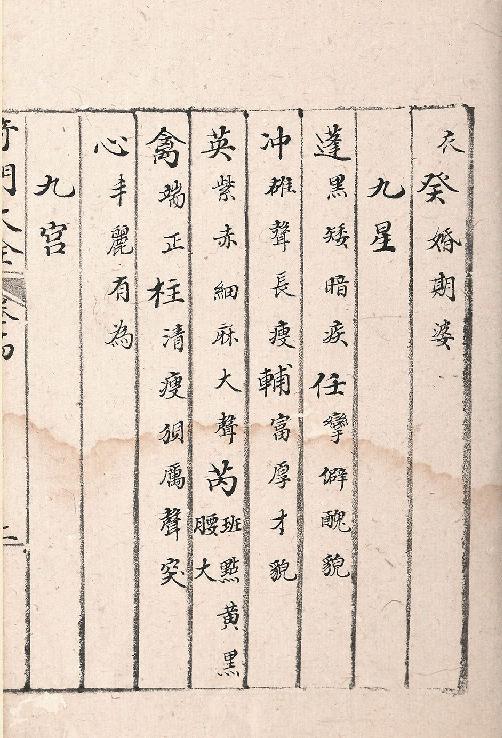 衣癸婚期婆
九星
蓬黑矮暗疾任孿僻醜貌
冲雄聲長瘦輔富厚才貌
英紫赤細麻大聲芮班點腰大黃黑
禽端正柱清瘦狽厲聲突
心丰麗有為
九宮
奇門大全